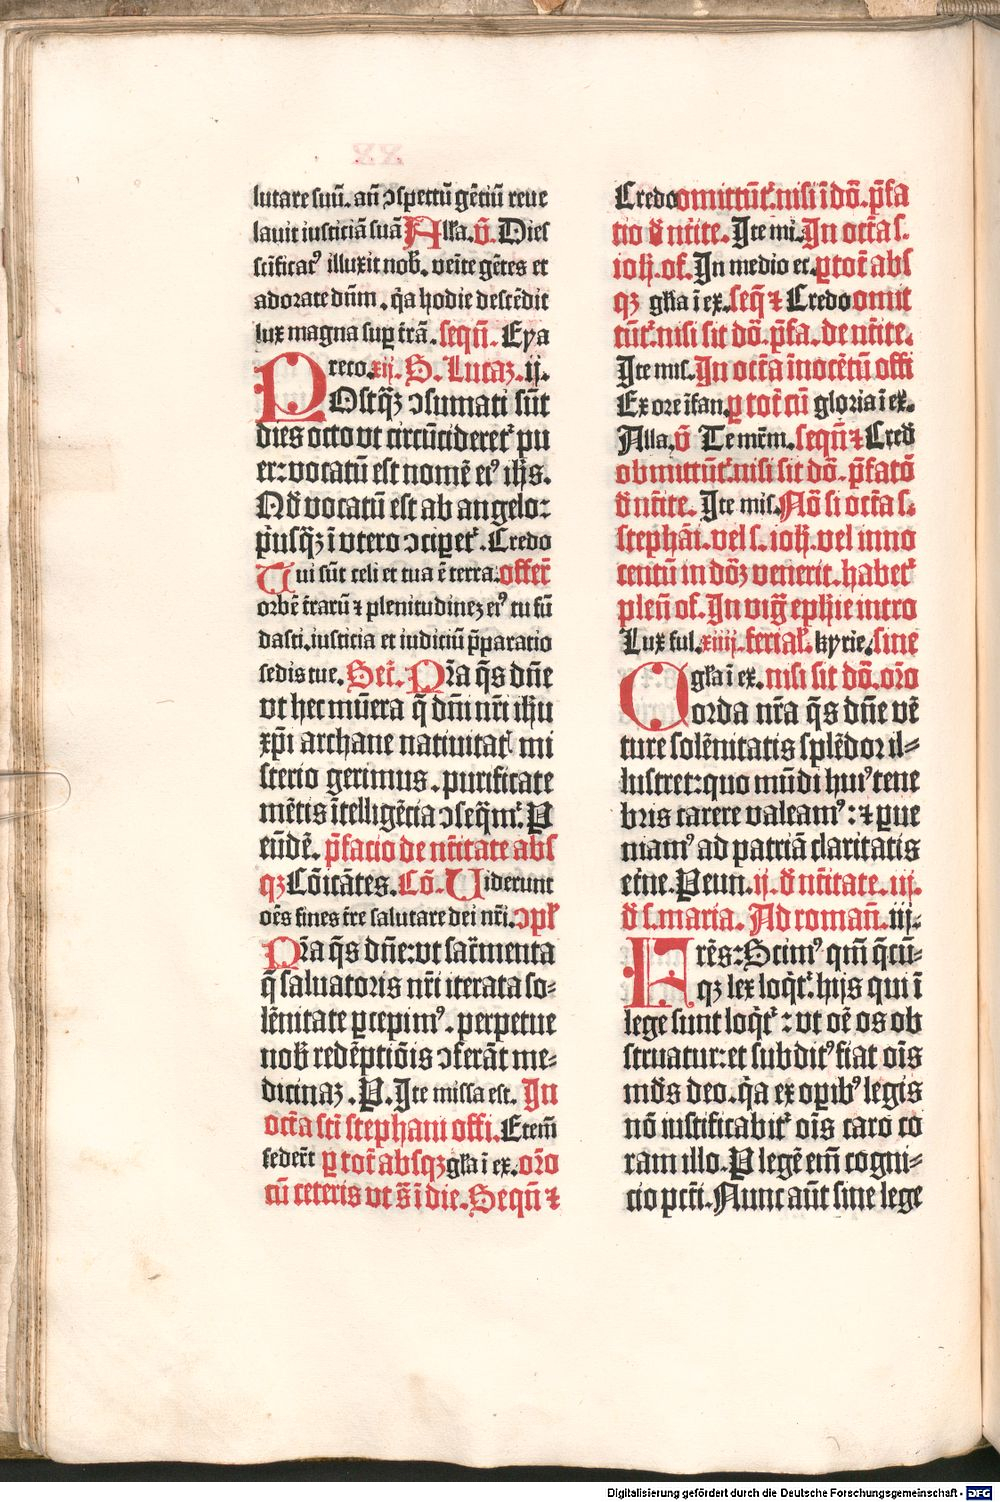 lutare suū. añ ↄspectū gētiū reue
lauit iusticiā suā Alľa. ℣. Dies
scīficatꝰ illuxit nob̄. veīte gētes et
adorate dn̄m. q̄a hodie descēdit
lux magna suꝑ t̄rā. seqn̄. Eya
reco. xij. S. Lucaꝫ. ij.
POstq̄ꝫ ↄsumati sūt
dies octo vt circūcideretᷣ pu
er: vocatū est nomē eiꝰ ih̄s.
Qd̄ vocatū est ab angelo:
p̄usq̄ꝫ ī vtero ↄcipetᷣ. Credo
Tui sūt celi et tua ē terra. offert̄
orbē t̄rarū ⁊ plenitudinez eiꝰ tu fū
dasti. iusticia et iudiciū p̄paratio
sedis tue. Secr̄. Nr̄a q̄s dn̄e
vt hec mūera q̄ dn̄i nr̄i ih̄u
xp̄i archane natiuitatꝭ mi
sterio gerimus. purificate
mētis ītelligētia ↄseq̄mᷣ. P
eūdē. p̄facio de nt̄itate abs
qꝫ Cōicātes. Cō. Uiderunt
oēs fines t̄re salutare dei nr̄i. ↄpl̄
Nr̄a q̄s dn̄e: vt sacr̄menta
q̄ saluatoris nr̄i iterata so⸗
lēnitate ꝑcepimꝰ. perpetue
nob̄ redēptiōis ↄferāt me⸗
dicinaꝫ. P. Ite missa est. In
octā scī stephani offi. Etem̄
sedert̄ ꝑ tot̄ absqꝫ gl̄ia ī ex. oro
cū ceteris vt s̄ ī die. Seqn̄ ⁊
XX
Credo omittūtᷣ. nisi ī dō. p̄fa
tio d̄ nt̄ite. Ite mi. In octā s.
ioh̄. of. In medio ec. ꝑ tot̄ abs
qꝫ gl̄ia ī ex. seq̄ ⁊ Credo omit
tūtᷣ. nisi sit dō. p̄fa. de nt̄ite.
Ite mis. In octā īnocētū offi
Ex ore īfan. ꝑ tot̄ cū gloria ī ex.
Alla. ℣ Te mr̄m. seqn̄ ⁊ Cred̄
obmittūtᷣ. nisi sit dō. p̄fatō
d̄ nt̄ite. Ite mis. Nō si octā s.
stephāi. vel s. ioh̄. vel inno
centū in dōꝫ venerit. habetᷣ
plen̄ of. In vig̅ eph̄ie intro
Lux ful. xiiij. ferialꝭ. kyrie. sine
gl̄ia ī ex. nisi sit dō. oro
Corda nr̄a q̄s dn̄e vē
ture solēnitatis splēdor il⸗
lustret: quo mūdi huiꝰ tene
bris carere valeamꝰ: ⁊ ꝑue
niamꝰ ad patriā claritatis
et̄ne. Peun. ij. d̄ nt̄itate. iij.
d̄ s. maria. Ad roman̄. iij.
Frēs: Scimꝰ qm̄ q̄cū⸗
qꝫ lex loq̄tᷣ. hijs qui ī
lege sunt loq̄tᷣ: vt oē os ob
struatur: et subditꝰ fiat oīs
mūds deo. q̄a ex opibꝰ legis
nō iustificabitᷣ oīs caro co
ram illo. P legē em̄ cogni⸗
tio pctī. Nunc aūt sine lege
Digitalisierung gefördert durch die Deutsche Forschungsgemeinschaft - DFG